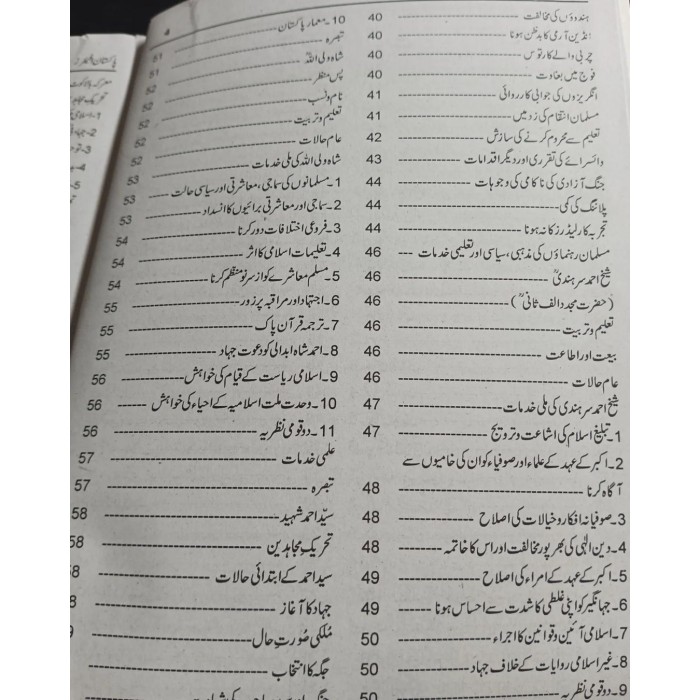 ہندوؤں کی مخالفت ---------- 40
انڈین آرمی کا بدظن ہونا ---------- 40
چربی والے کارتوس ---------- 40
فوج میں بغاوت ---------- 40
انگریزوں کی جوابی کارروائی ---------- 41
مسلمان انتقام کی زد میں ---------- 41
تعلیم سے محروم کرنے کی سازش ---------- 42
وائسرائے کی تقرری اور دیگر اقدامات ---------- 43
جنگ آزادی کی ناکامی کی وجوہات ---------- 44
پلاننگ کی کمی ---------- 44
تجربہ کار لیڈرز کا نہ ہونا ---------- 44
مسلمان رہنماؤں کی مذہبی، سیاسی اور تعلیمی خدمات --- 46
شیخ احمد سرہندیؒ ---------- 46
(حضرت مجدد الف ثانیؒ) ---------- 46
تعلیم و تربیت ---------- 46
بیعت اور اطاعت ---------- 46
عام حالات ---------- 46
شیخ احمد سرہندی کی ملی خدمات ---------- 47
1۔ تبلیغ اسلام کی اشاعت و ترویج ---------- 47
2۔ اکبر کے عہد کے علماء اور صوفیاء کو ان کی خامیوں سے
آگاہ کرنا ---------- 48
3۔ صوفیانہ افکار و خیالات کی اصلاح ---------- 48
4۔ دین الٰہی کی بھرپور مخالفت اور اس کا خاتمہ ---------- 48
5۔ اکبر کے عہد کے امراء کی اصلاح ---------- 49
6۔ جہانگیر کو اپنی غلطی کا شدت سے احساس ہونا ---------- 49
7۔ اسلامی آئین و قوانین کا اجراء ---------- 50
8۔ غیر اسلامی روایات کے خلاف جہاد ---------- 50
9۔ دو قومی نظریہ ---------- 50
4
10۔ معمار پاکستان ---------- 51
تبصرہ ---------- 51
شاہ ولی اللہؒ ---------- 52
پس منظر ---------- 52
نام و نسب ---------- 52
تعلیم و تربیت ---------- 52
عام حالات ---------- 52
شاہ ولی اللہ کی ملی خدمات ---------- 53
1۔ مسلمانوں کی سماجی، معاشرتی اور سیاسی حالت ---------- 53
2۔ سماجی اور معاشرتی برائیوں کا انسداد ---------- 53
3۔ فروعی اختلافات دور کرنا ---------- 54
4۔ تعلیمات اسلامی کا اثر ---------- 54
5۔ مسلم معاشرے کو از سر نو منظم کرنا ---------- 54
6۔ اجتہاد اور مراقبہ پر زور ---------- 55
7۔ ترجمہ قرآن پاک ---------- 55
8۔ احمد شاہ ابدالی کو دعوت جہاد ---------- 55
9۔ اسلامی ریاست کے قیام کی خواہش ---------- 56
10۔ وحدت ملت اسلامیہ کے احیاء کی خواہش ------ 56
11۔ دو قومی نظریہ ---------- 56
علمی خدمات ---------- 57
تبصرہ ---------- 57
سیّد احمد شہید ---------- 58
تحریک مجاہدین ---------- 58
سید احمد کے ابتدائی حالات ---------- 58
جہاد کا آغاز ----------
ملکی صورت حال ----------
جگہ کا انتخاب ----------